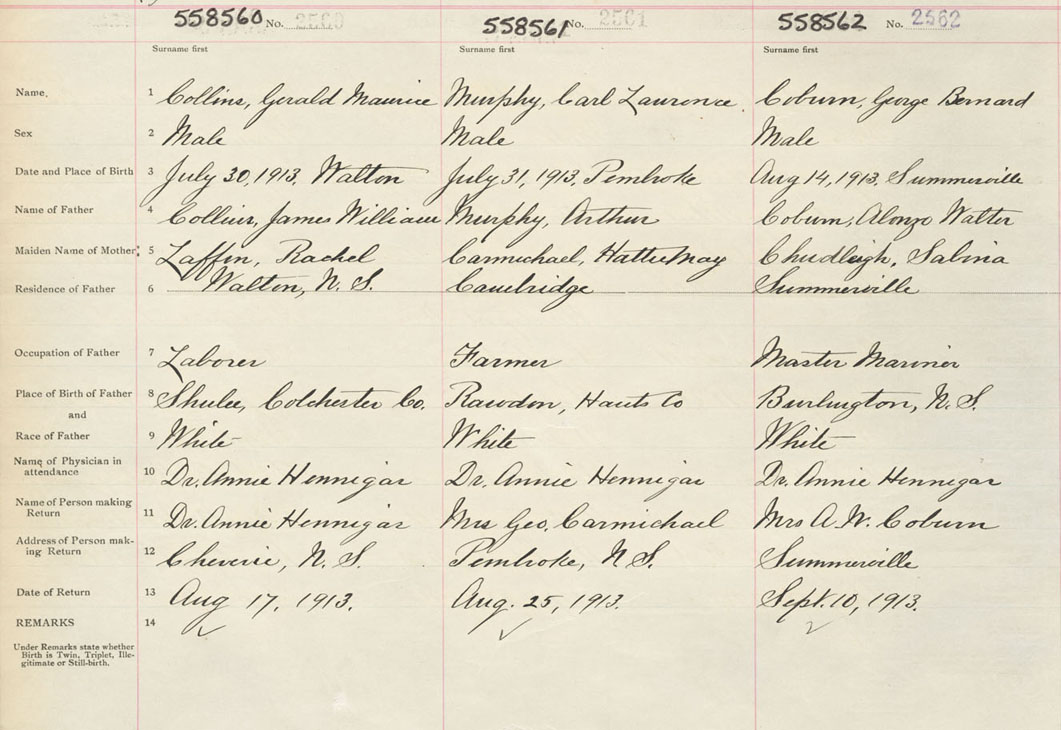 558560 No. 2560 558561 No. 2561 558562 No. 2562
Surname first Surname first Surname first
Name. 1 Collins, Gerald Maurice Murphy, Carl Laurence. Coburn, George Bernard
Sex 2 Male Male Male
Date and Place of Birth 3 July 30, 1913, Walton July 31, 1913, Pembroke Aug 14, 1913, Summerville
Name of Father 4 Collins, James William Murphy, Arthur Coburn, Alonzo Walter
Maiden Name of Mother 5 Laffin, Rachel Carmichael, Hattie May Chudleigh, Sabina
Residence of Father 6 Walton, N. S. Cambridge Summerville
Occupation of Father 7 Laborer Farmer Master Mariner
Place of Birth of Father 8 Shulee, Colchester Co. Rawdon, Hants Co Burlington, N. S.
and
Race of Father 9 White White White
Name of Physician in
attendance 10 Dr. Annie Hennigar Dr. Annie Hennigar Dr. Annie Hennigar
Name of Person making
Return 11 Dr. Annie Hennigar Mrs Geo, Carmichael Mrs A. W. Coburn
Address of Person mak-
ing Return 12 Cheverie, N. S. Pembroke, N S. Summerville
Date of Return 13 Aug 17, 1913. Aug. 25, 1913. Sept. 10, 1913.
REMARKS 14
Under Remarks state whether
Birth is Twin, Triplet, Ille-
gitimate or Still-birth.